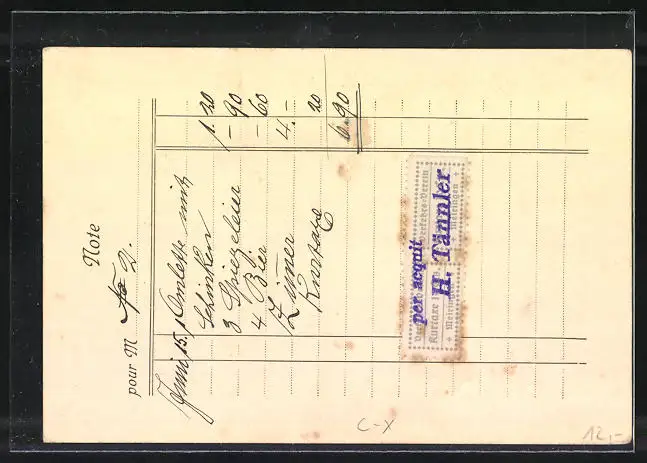 Note
pour M No 2.
Juni 15. 1 Omlette mit
Schinken 1.20
3 Spiegeleier – 90
4 Bier – 60
1 Zimmer 4. –
Kurtaxe 20
6.90
per acquit
H. Tännler
Verkehrs-Verein
Meiringen
Kurtaxe
Meiringen
C-X
12,-